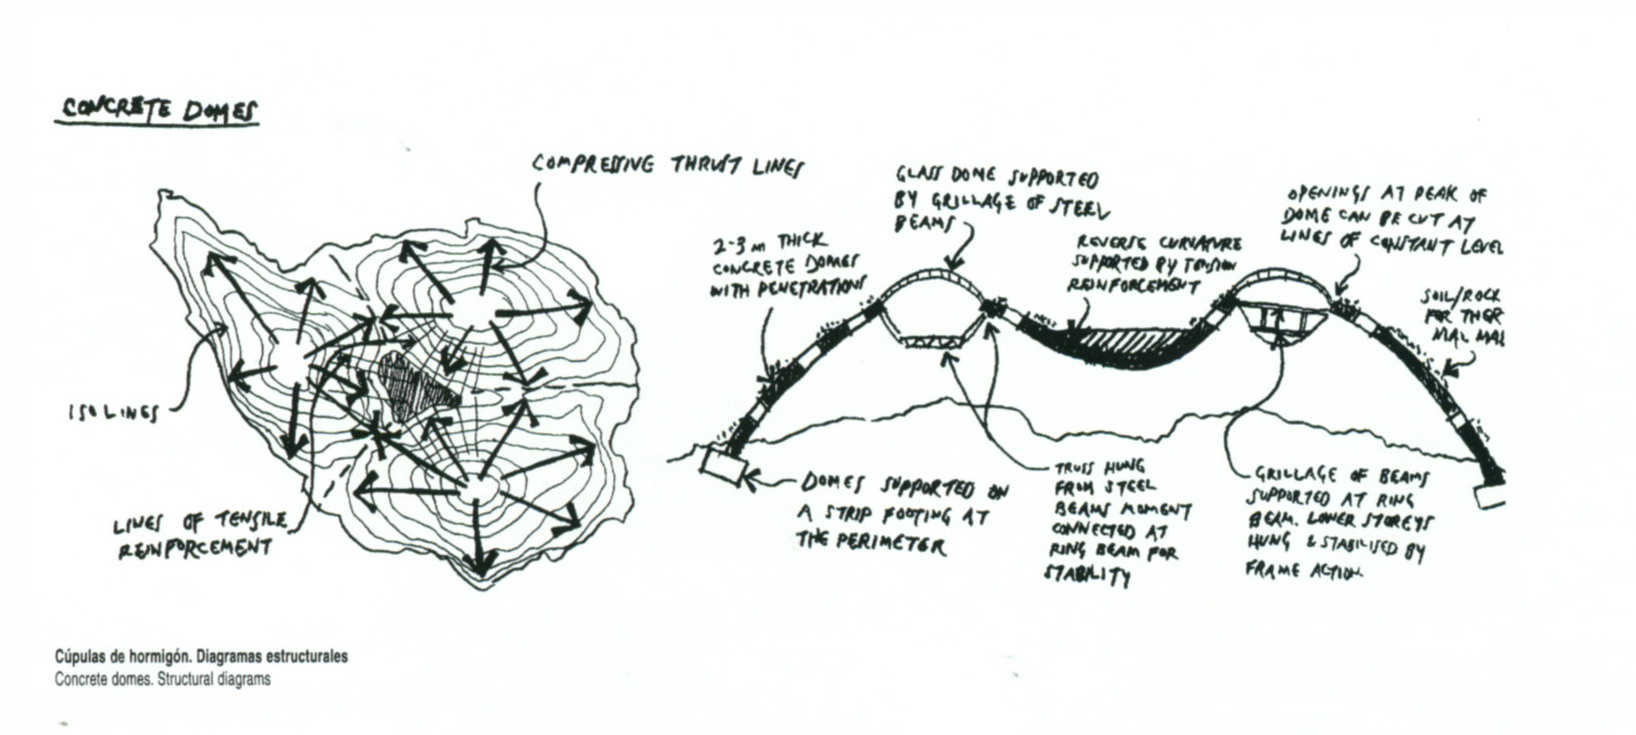 CONCRETE DOMES
COMPRESSIVE THRUST LINES
ISO LINES
LINES OF TENSILE
REINFORCEMENT
2-3 m THICK
CONCRETE DOMES
WITH PENETRATIONS
GLASS DOME SUPPORTED
BY GRILLAGE OF STEEL
BEAMS
REVERSE CURVATURE
SUPPORTED BY TENSION
REINFORCEMENT
OPENINGS AT PEAK OF
DOME CAN BE CUT AT
LINES OF CONSTANT LEVEL
SOIL/ROCK
FOR THER
MAL MAS
DOMES SUPPORTED ON
A STRIP FOOTING AT
THE PERIMETER
TRUSS HUNG
FROM STEEL
BEAMS MOMENT
CONNECTED AT
RING BEAM FOR
STABILITY
GRILLAGE OF BEAMS
SUPPORTED AT RING
BEAM. LOWER STOREYS
HUNG & STABILISED BY
FRAME ACTION.
Cúpulas de hormigón. Diagramas estructurales
Concrete domes. Structural diagrams